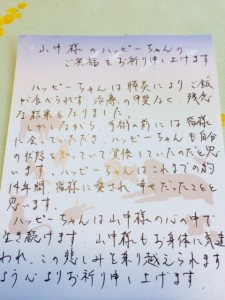 山中様のハッピーちゃんの
ご冥福をお祈り申し上げます
ハッピーちゃんは膵炎によりご飯
が食べられず、治療の甲斐なく、残念
な結果となりました。
しかしながら、手術の前には皆様
に会っていただき、ハッピーちゃんも自分
の状態を知っていて覚悟していたのだと思
います。ハッピーちゃんはこれまでの約
14年間、皆様に愛され幸せだったことと
思います。
ハッピーちゃんは山中様の心の中で
生き続けます。山中様もお身体に気を遣
われ、この悲しみを乗り越えられます
よう心よりお祈り申し上げます。